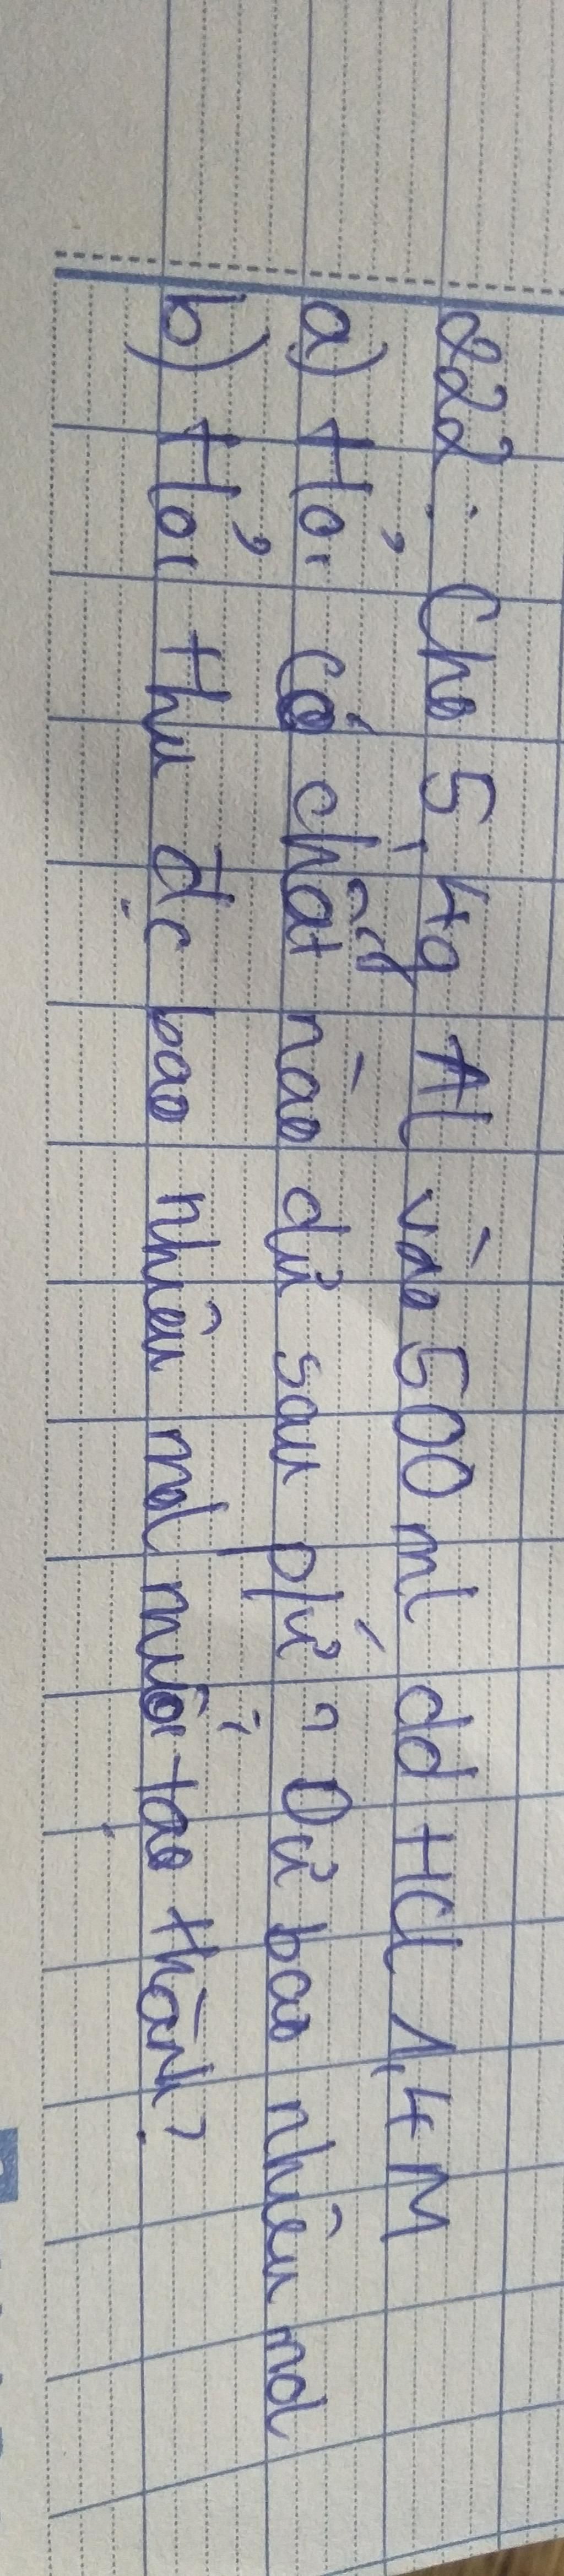 22: Cho 5,4g Al vào 500 ml dd HCl 1,4M
a) Hỏi có chất nào dư sau p/ứ? Dư bao nhiêu mol
b) Hỏi thu đc bao nhiêu mol muối tạo thành?